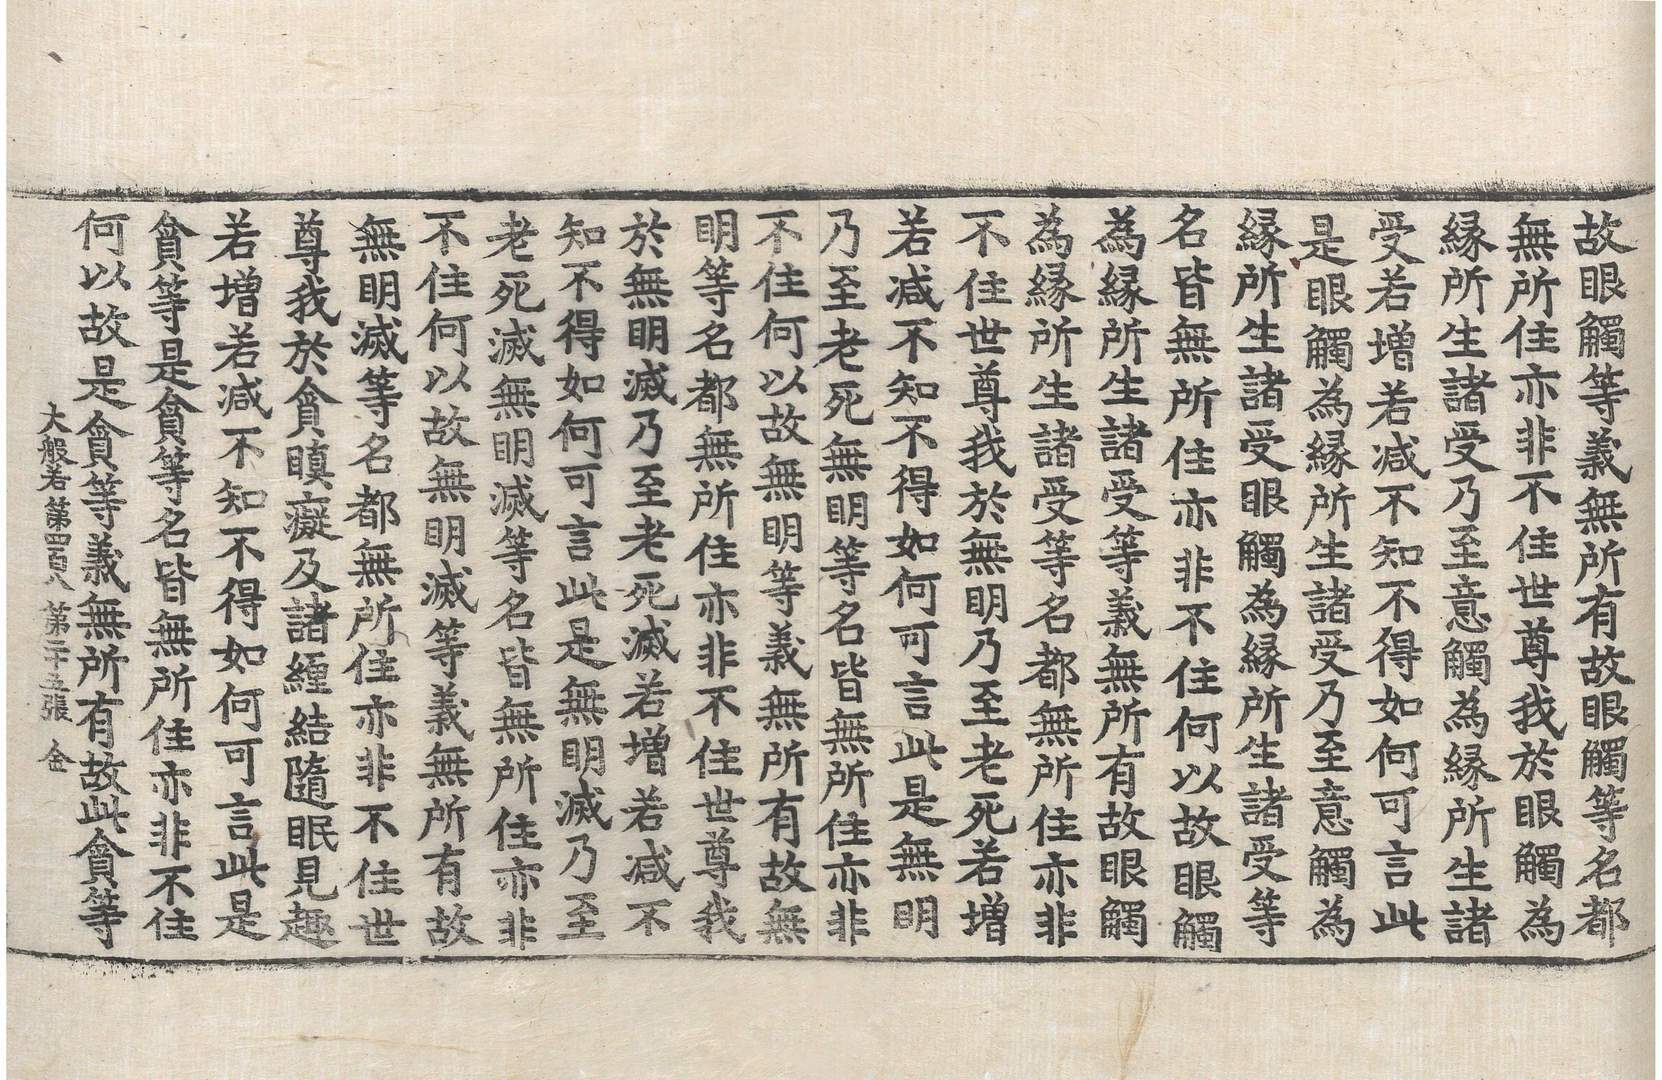 故眼觸等義無所有故眼觸等名都
無所住亦非不住世尊我於眼觸為
縁所生諸受乃至意觸為縁所生諸
受若增若減不知不得如何可言此
是眼觸為縁所生諸受乃至意觸為
縁所生諸受眼觸為縁所生諸受等
名皆無所住亦非不住何以故眼觸
為縁所生諸受等義無所有故眼觸
為縁所生諸受等名都無所住亦非
不住世尊我於無明乃至老死若增
若減不知不得如何可言此是無明
乃至老死無明等名皆無所住亦非
不住何以故無明等義無所有故無
明等名都無所住亦非不住世尊我
於無明滅乃至老死滅若增若減不
知不得如何可言此是無明滅乃至
老死滅無明滅等名皆無所住亦非
不住何以故無明滅等義無所有故
無明滅等名都無所住亦非不住世
尊我於貪瞋癡及諸纏結隨眠見趣
若增若減不知不得如何可言此是
貪等是貪等名皆無所住亦非不住
何以故是貪等義無所有故此貪等
大般若第四百八 第二十五張 金